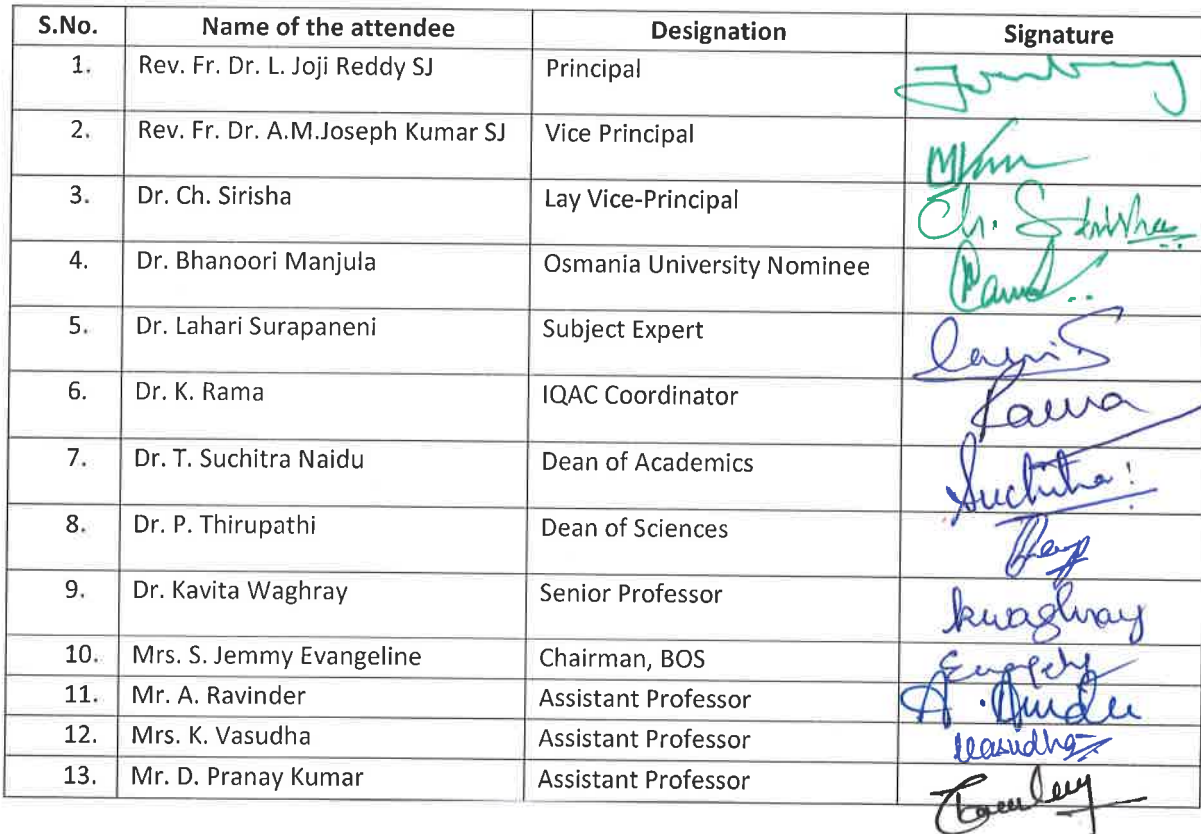 S.No. Name of the attendee Designation Signature
1. Rev. Fr. Dr. L. Joji Reddy SJ Principal
2. Rev. Fr. Dr. A.M.Joseph Kumar SJ Vice Principal
3. Dr. Ch. Sirisha Lay Vice-Principal Ch. Sirisha
4. Dr. Bhanoori Manjula Osmania University Nominee
5. Dr. Lahari Surapaneni Subject Expert
6. Dr. K. Rama IQAC Coordinator Rama
7. Dr. T. Suchitra Naidu Dean of Academics Suchitra
8. Dr. P. Thirupathi Dean of Sciences
9. Dr. Kavita Waghray Senior Professor kwaghray
10. Mrs. S. Jemmy Evangeline Chairman, BOS
11. Mr. A. Ravinder Assistant Professor
12. Mrs. K. Vasudha Assistant Professor Vasudha
13. Mr. D. Pranay Kumar Assistant Professor